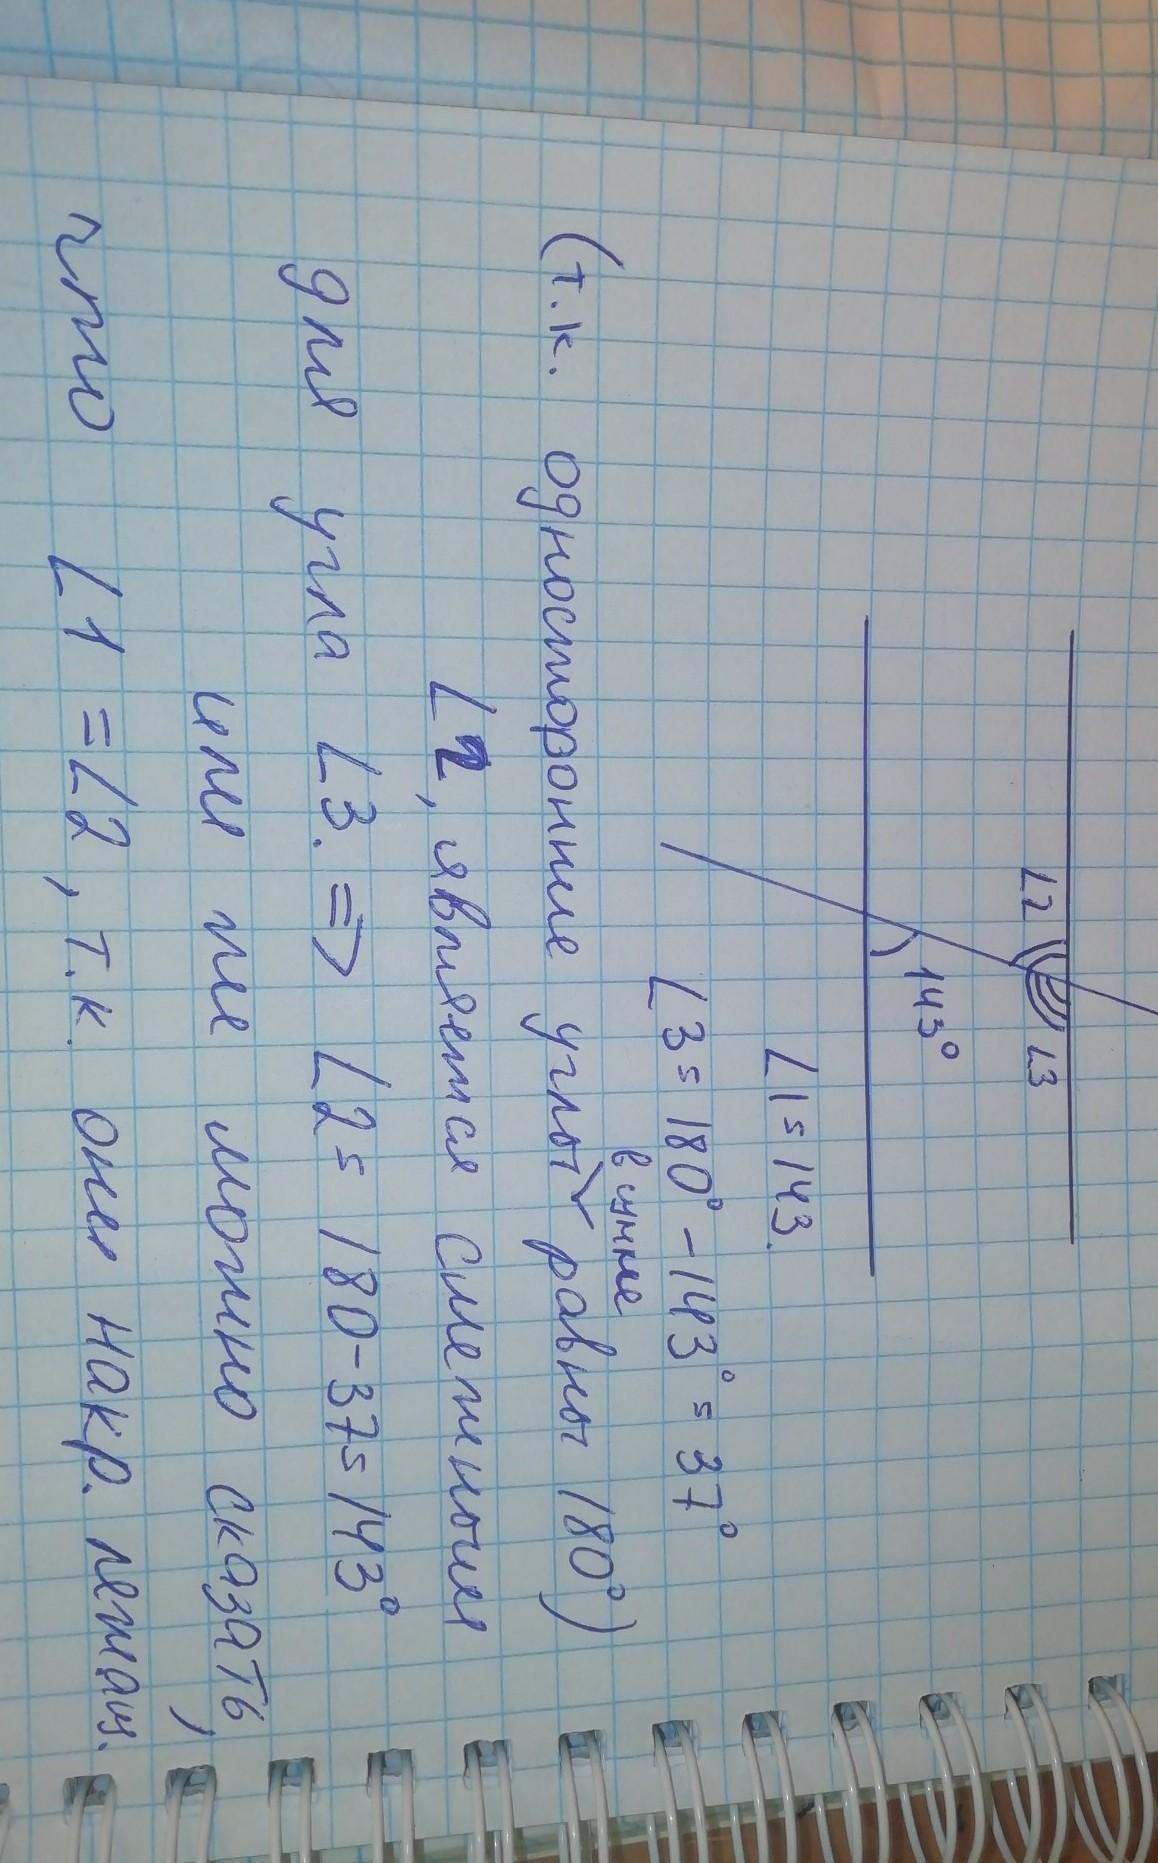 ∠2 ∠3
143°
∠1 = 143.
∠3 = 180° - 143° = 37°
в сумме
(т.к. односторонние углы равны 180°)
∠2, является смежным
для угла ∠3. => ∠2 = 180-37=143°
или же можно сказать,
что ∠1 = ∠2, т.к. они накр. лежащ.